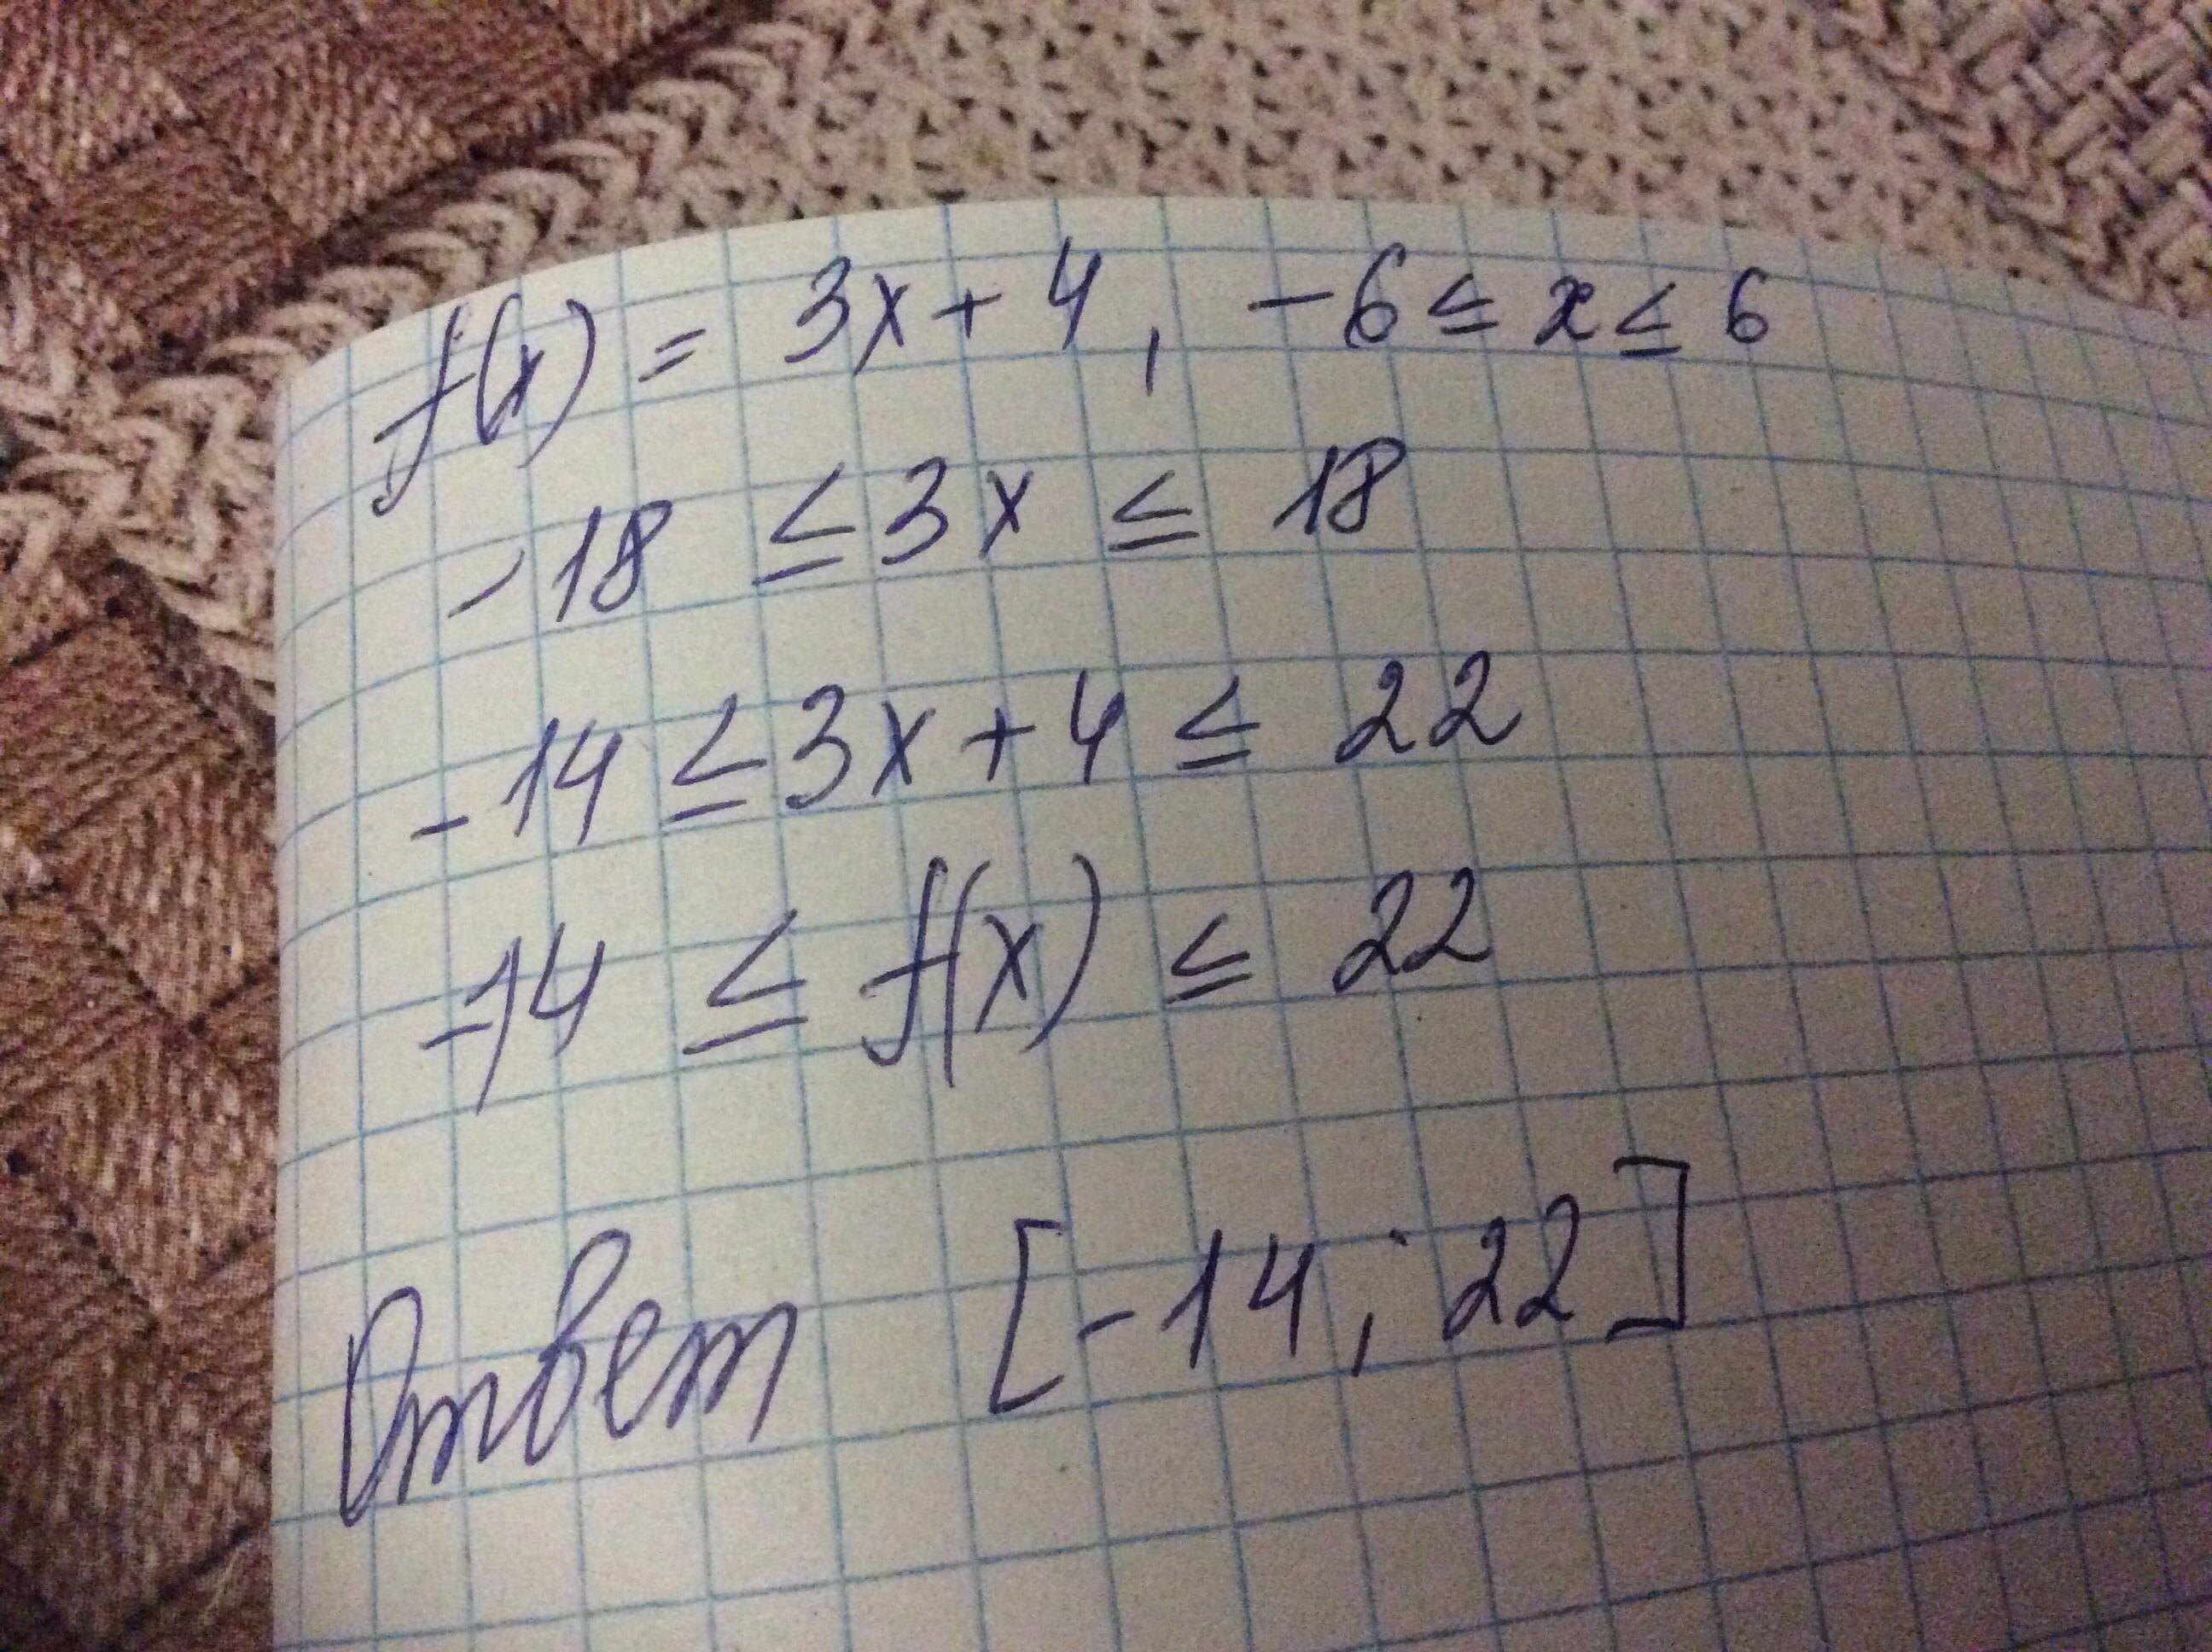 f(x) = 3x + 4, -6 ≤ x ≤ 6
-18 ≤ 3x ≤ 18
-14 ≤ 3x + 4 ≤ 22
-14 ≤ f(x) ≤ 22
Ответ [-14; 22]